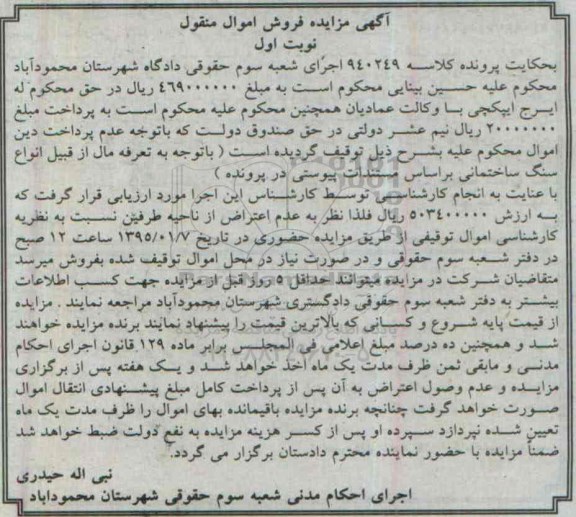 آگهی مزایده فروش اموال منقول
نوبت اول
بحکایت پرونده کلاسه ۹۴۰۲۴۹ اجرای شعبه سوم حقوقی دادگاه شهرستان محمودآباد
محکوم علیه حسین بینایی محکوم است به مبلغ ۴۶۹۰۰۰۰۰۰ ریال در حق محکوم له
ایرج ایپکچی با وکالت عمادیان همچنین محکوم علیه محکوم است به پرداخت مبلغ
۲۰۰۰۰۰۰۰ ریال نیم عشر دولتی در حق صندوق دولت که باتوجه عدم پرداخت دین
اموال محکوم علیه بشرح ذیل توقیف گردیده است ( باتوجه به تعرفه مال از قبیل انواع
سنگ ساختمانی براساس مستندات پیوستی در پرونده )
با عنایت به انجام کارشناسی توسط کارشناس این اجرا مورد ارزیابی قرار گرفت که
به ارزش ۵۰۳۴۰۰۰۰۰ ریال فلذا نظر به عدم اعتراض از ناحیه طرفین نسبت به نظریه
کارشناسی اموال توقیفی از طریق مزایده حضوری در تاریخ ۱۳۹۵/۰۱/۷ ساعت ۱۲ صبح
در دفتر شعبه سوم حقوقی و در صورت نیاز در محل اموال توقیف شده بفروش میرسد
متقاضیان شرکت در مزایده میتوانند حداقل ۵ روز قبل از مزایده جهت کسب اطلاعات
بیشتر به دفتر شعبه سوم حقوقی دادگستری شهرستان محمودآباد مراجعه نمایند . مزایده
از قیمت پایه شروع و کسانی که بالاترین قیمت را پیشنهاد نمایند برنده مزایده خواهند
شد و همچنین ده درصد مبلغ اعلامی فی المجلس برابر ماده ۱۲۹ قانون اجرای احکام
مدنی و مابقی ثمن ظرف مدت یک ماه اخذ خواهد شد و یک هفته پس از برگزاری
مزایده و عدم وصول اعتراض به آن پس از پرداخت کامل مبلغ پیشنهادی انتقال اموال
صورت خواهد گرفت چنانچه برنده مزایده باقیمانده بهای اموال را ظرف مدت یک ماه
تعیین شده نپردازد سپرده او پس از کسر هزینه مزایده به نفع دولت ضبط خواهد شد
ضمناً مزایده با حضور نماینده محترم دادستان برگزار می گردد.
نبی اله حیدری
اجرای احکام مدنی شعبه سوم حقوقی شهرستان محموداباد